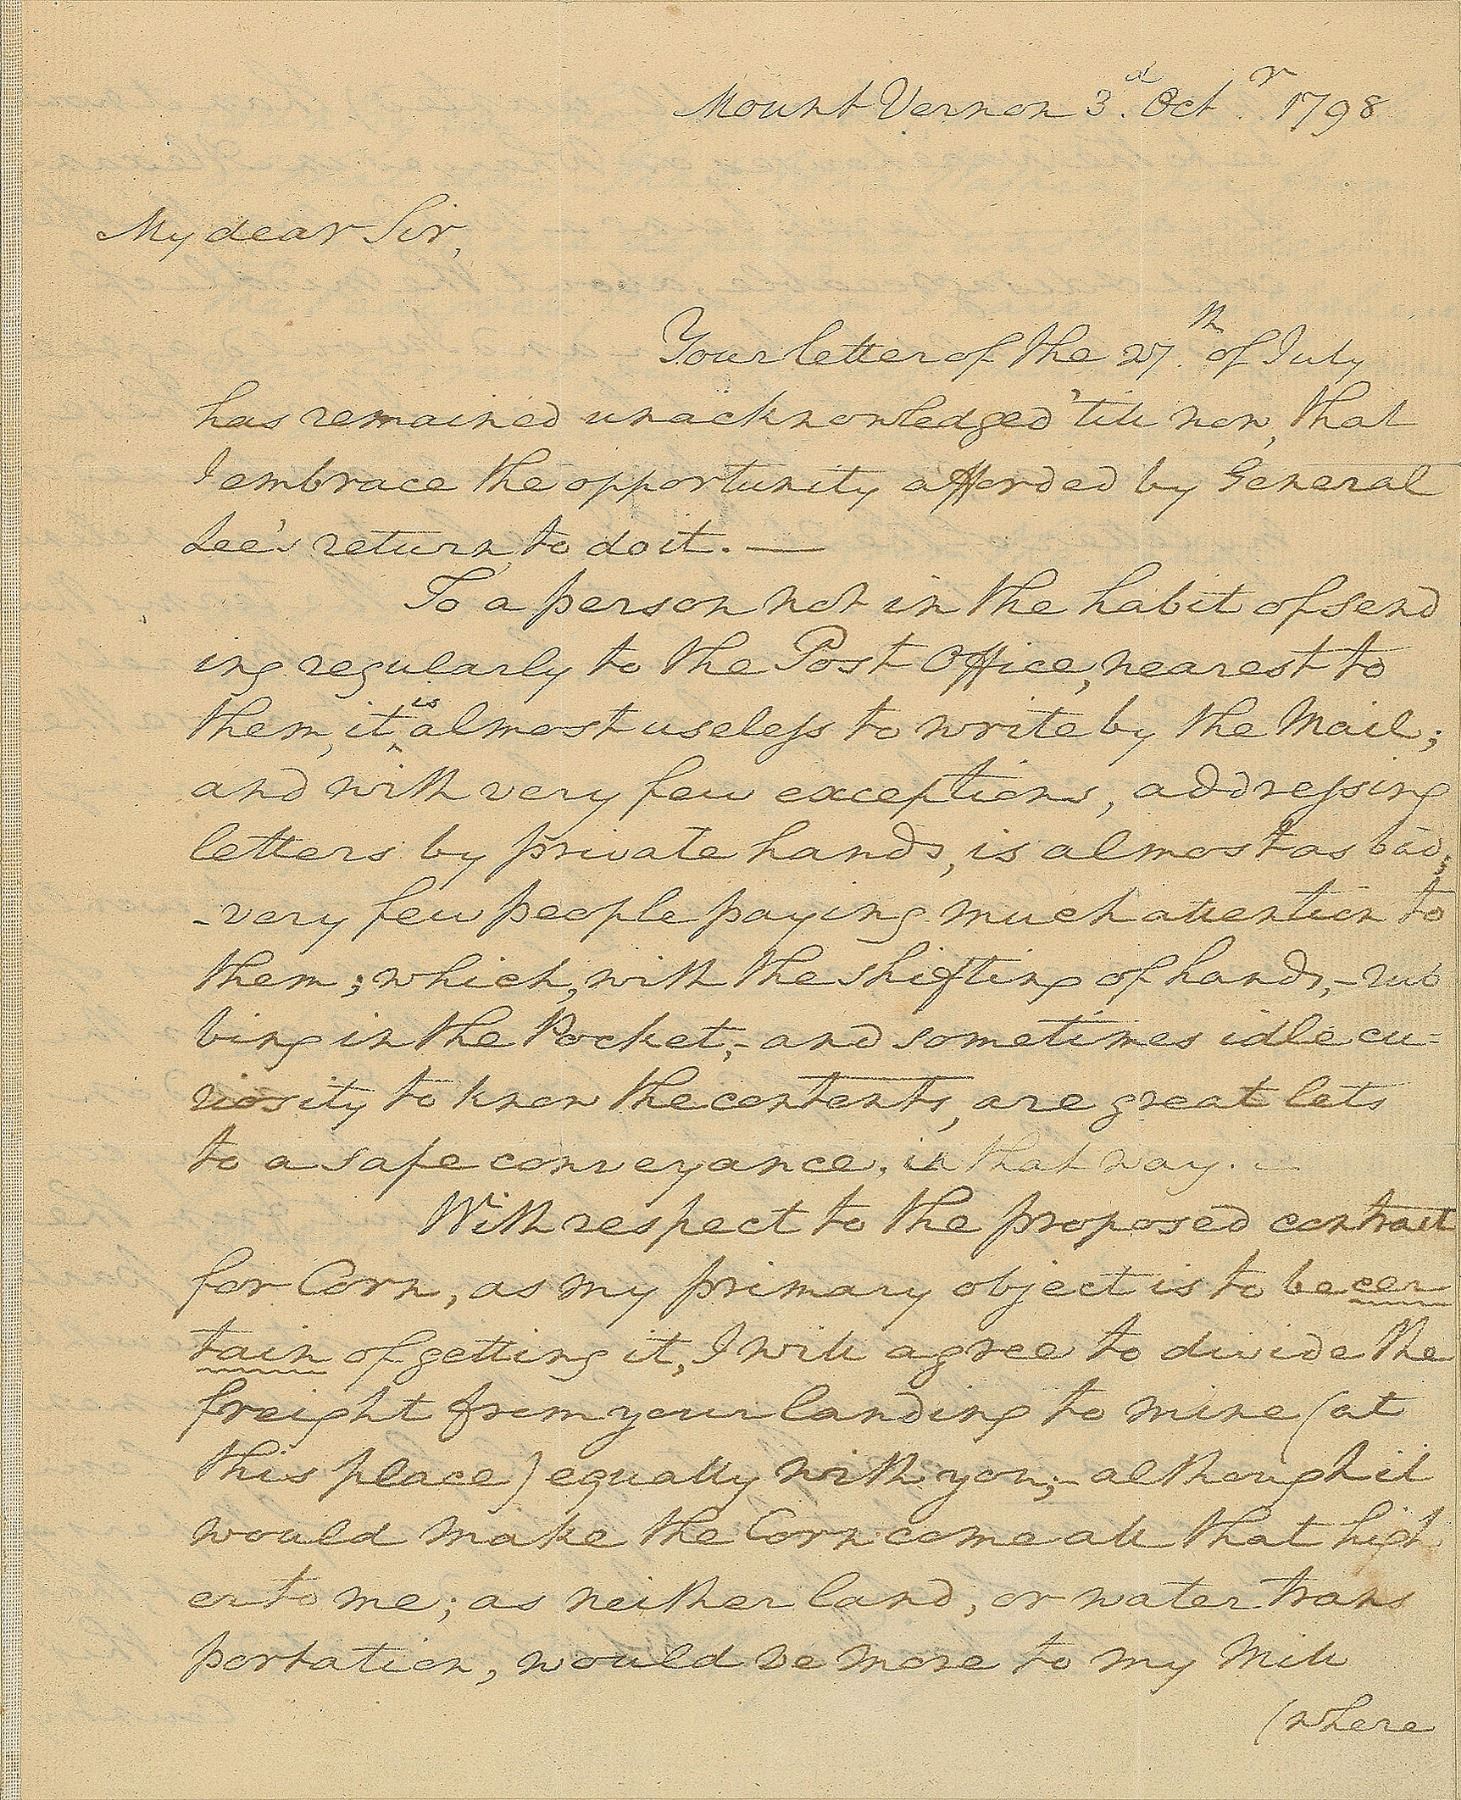 Mount Vernon 3.d Octr. 1798
My dear Sir,
Your letter of the 27.th of July
has remained unacknowledged 'till now, that
I embrace the opportunity afforded by General
Lee's return, to do it. —
To a person not in the habit of send
ing regularly to the Post Office, nearest to
them, it is almost useless to write by the Mail;
and with very few exceptions, addressing
letters by private hands, is almost as bad,
-very few people paying much attention to
them; which, with the shifting of hands,-rub
bing in the Pocket,-and sometimes idle cu=
riosity to know the contents, are great lets
to a safe conveyance, in that way. —
With respect to the proposed contract
for Corn, as my primary object is to be cer
tain of getting it, I will agree to divide the
freight from your landing to mine (at
this place) equally with you;- although it
would make the Corn come all that high
er to me; as neither land, or water trans
portation, would be more to my Mill
(where